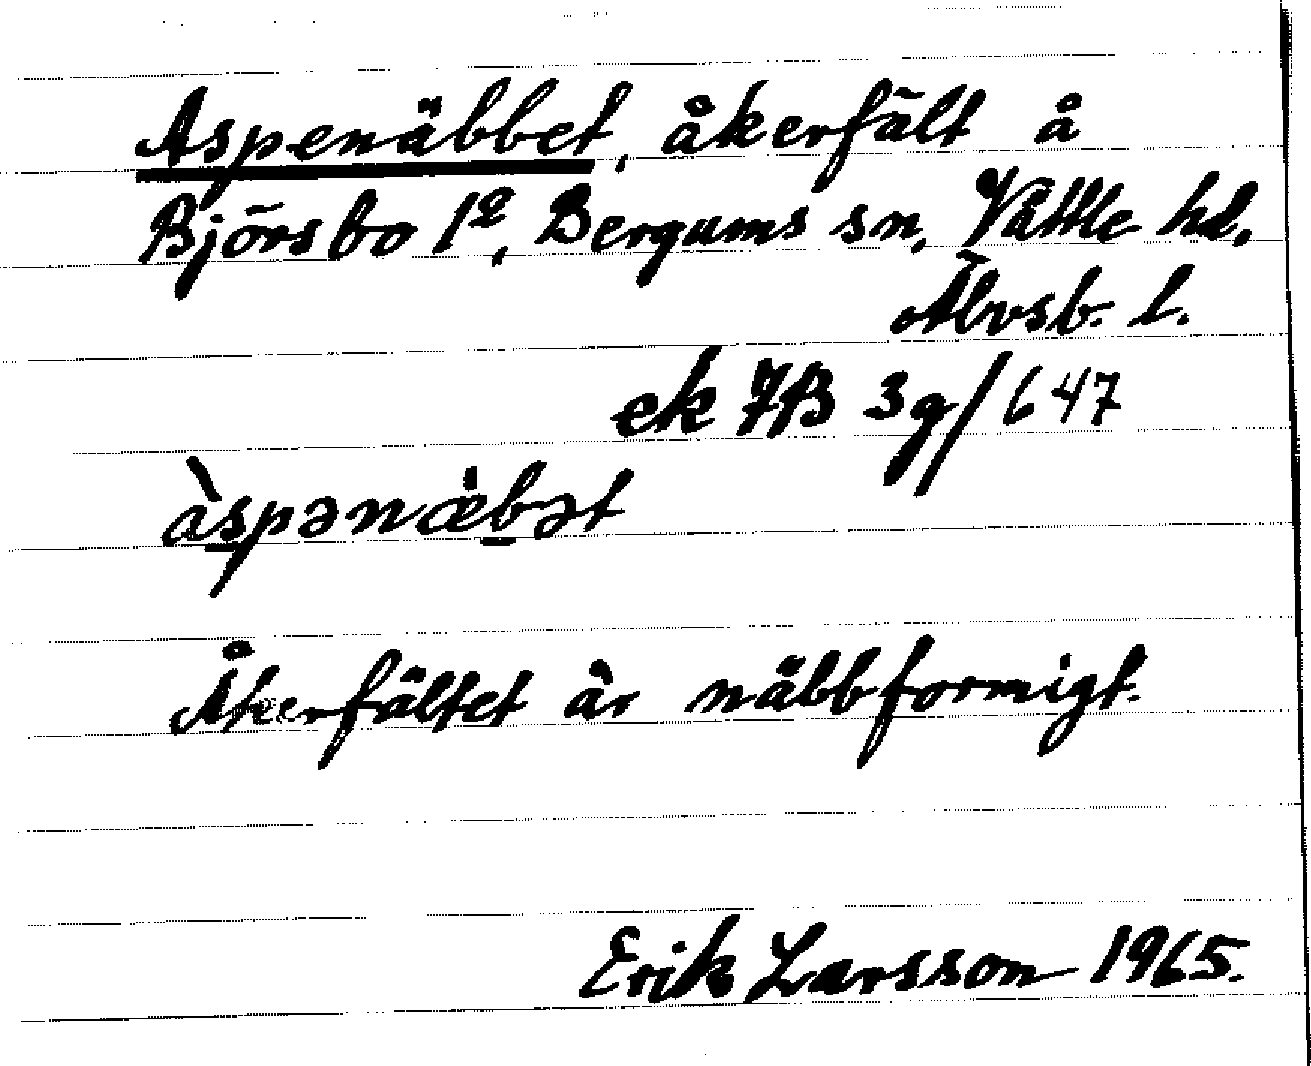 Aspenäbbet, åkerfält å
Björsbo 1², Bergums sn, Vättle hd,
Älvsb. l.
ek 7B 3g/647
àspənæ̀bət
Åkerfältet är näbbformigt.
Erik Larsson 1965.